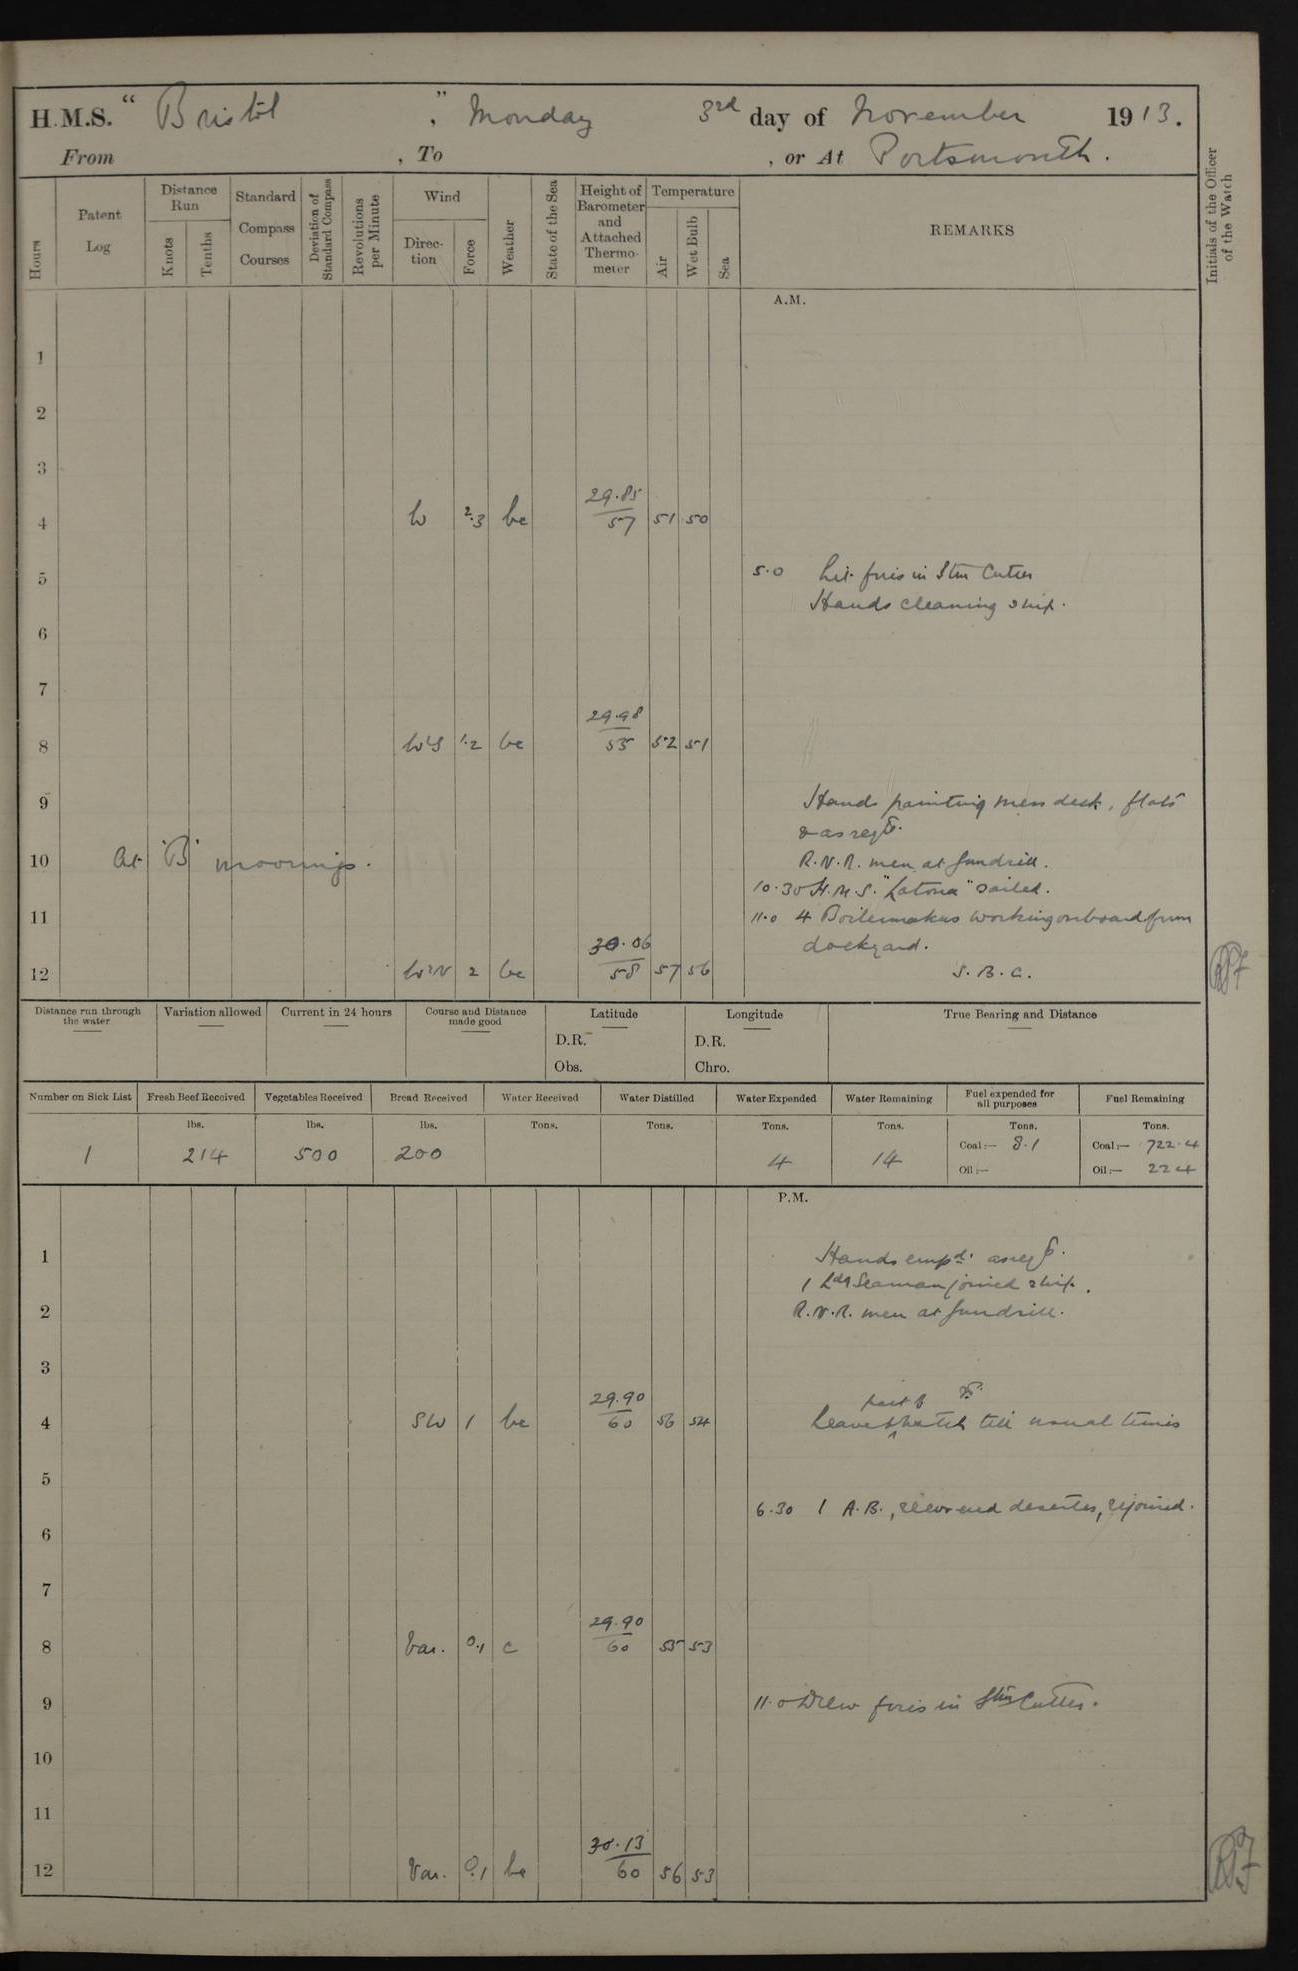 H.M.S. " Bristol ", Monday 3rd day of November 1913.
From , To , or At Portsmouth.
Hours
Patent Log
Distance Run
Knots
Tenths
Standard Compass Courses
Deviation of Standard Compass
Revolutions per Minute
Wind
Direc-tion
Force
Weather
State of the Sea
Height of Barometer and Attached Thermo-meter
Temperature
Air
Wet Bulb
Sea
REMARKS
Initials of the Officer of the Watch
A.M.
1
2
3
4 W 2.3 bc 29.85 57 51 50
5 5.0 Lit fires in Stm Cutter
Hands cleaning ship.
6
7
8 W'S 1.2 bc 29.98 55 52 51
9 Hands painting mess deck, flats
& as reqd.
10 At 'B' moorings. R.N.R. men at Gundrill.
10.30 H.M.S. "Latona" sailed.
11 11.0 4 Boilermakers working onboard from
dockyard.
12 W'N 2 bc 30.06 58 57 56 S.B.C.
Distance run through the water
Variation allowed
Current in 24 hours
Course and Distance made good
Latitude
D.R.
Obs.
Longitude
D.R.
Chro.
True Bearing and Distance
Number on Sick List
Fresh Beef Received
Vegetables Received
Bread Received
Water Received
Water Distilled
Water Expended
Water Remaining
Fuel expended for all purposes
Fuel Remaining
lbs. lbs. lbs. Tons. Tons. Tons. Tons. Tons. Tons.
1 214 500 200 4 14 Coal:— 8.1 Coal:— 722.4
Oil:— Oil:— 224
P.M.
1 Hands empd. as reqd.
1 Ldg Seaman joined ship.
2 R.N.R. men at Gundrill.
3
4 SW 1 bc 29.90 60 56 54 Leave to part of watch till usual times
5
6.30 1 A.B., recovered deserter, rejoined.
6
7
8 Var. 0.1 c 29.90 60 55 53
9 11.0 Drew fires in Stm Cutter.
10
11
12 Var. 0.1 bc 30.13 60 56 53